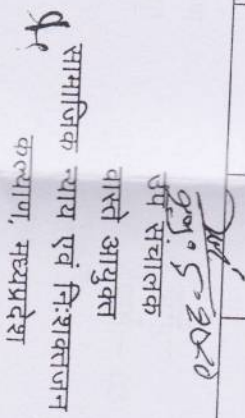 उप संचालक
वास्ते आयुक्त
सामाजिक न्याय एवं निःशक्तजन
कल्याण, मध्यप्रदेश